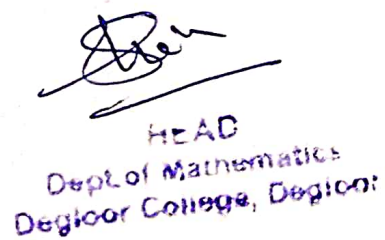 HEAD
Dept.of Mathematics
Degloor College, Degloor